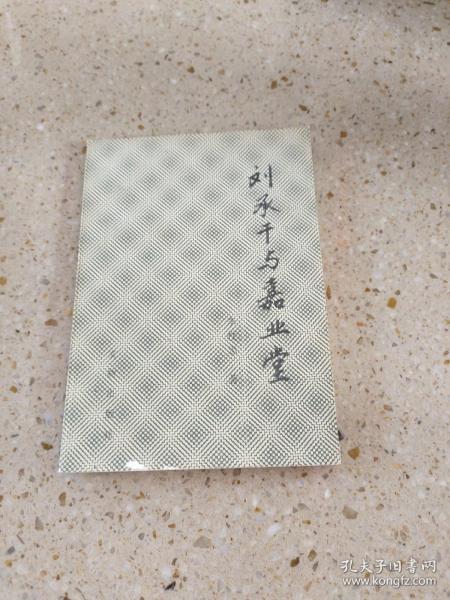 刘承干与嘉业堂
孔夫子旧书网
www.kongfz.com